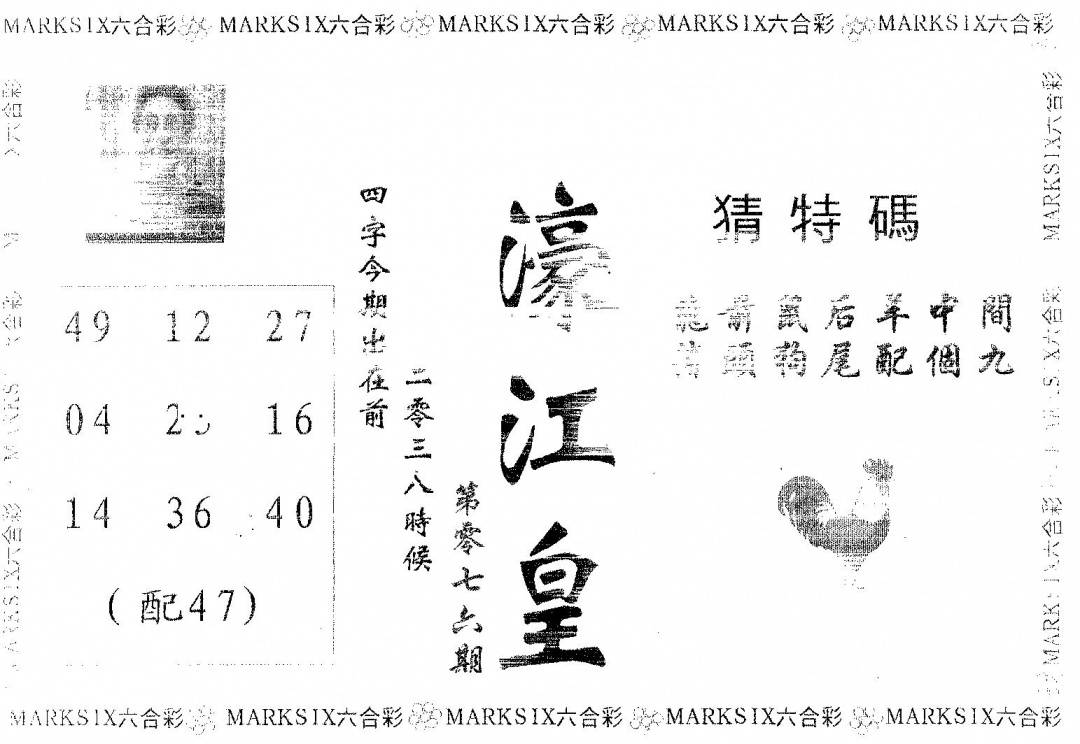 MARKSIX六合彩 MARKSIX六合彩 MARKSIX六合彩 MARKSIX六合彩 MARKSIX六合彩
猜特碼
龍前鼠后羊中間
猪頭狗尾配個九
濠江皇
第零七六期
二零三八時候
四字今期出在前
49 12 27
04 16
14 36 40
(配47)
六合彩
六合彩
MARKSIX六合彩
MARKSIX六合彩
MARKSIX六合彩
MARKSIX六合彩
MARKSIX六合彩 MARKSIX六合彩 MARKSIX六合彩 MARKSIX六合彩 MARKSIX六合彩